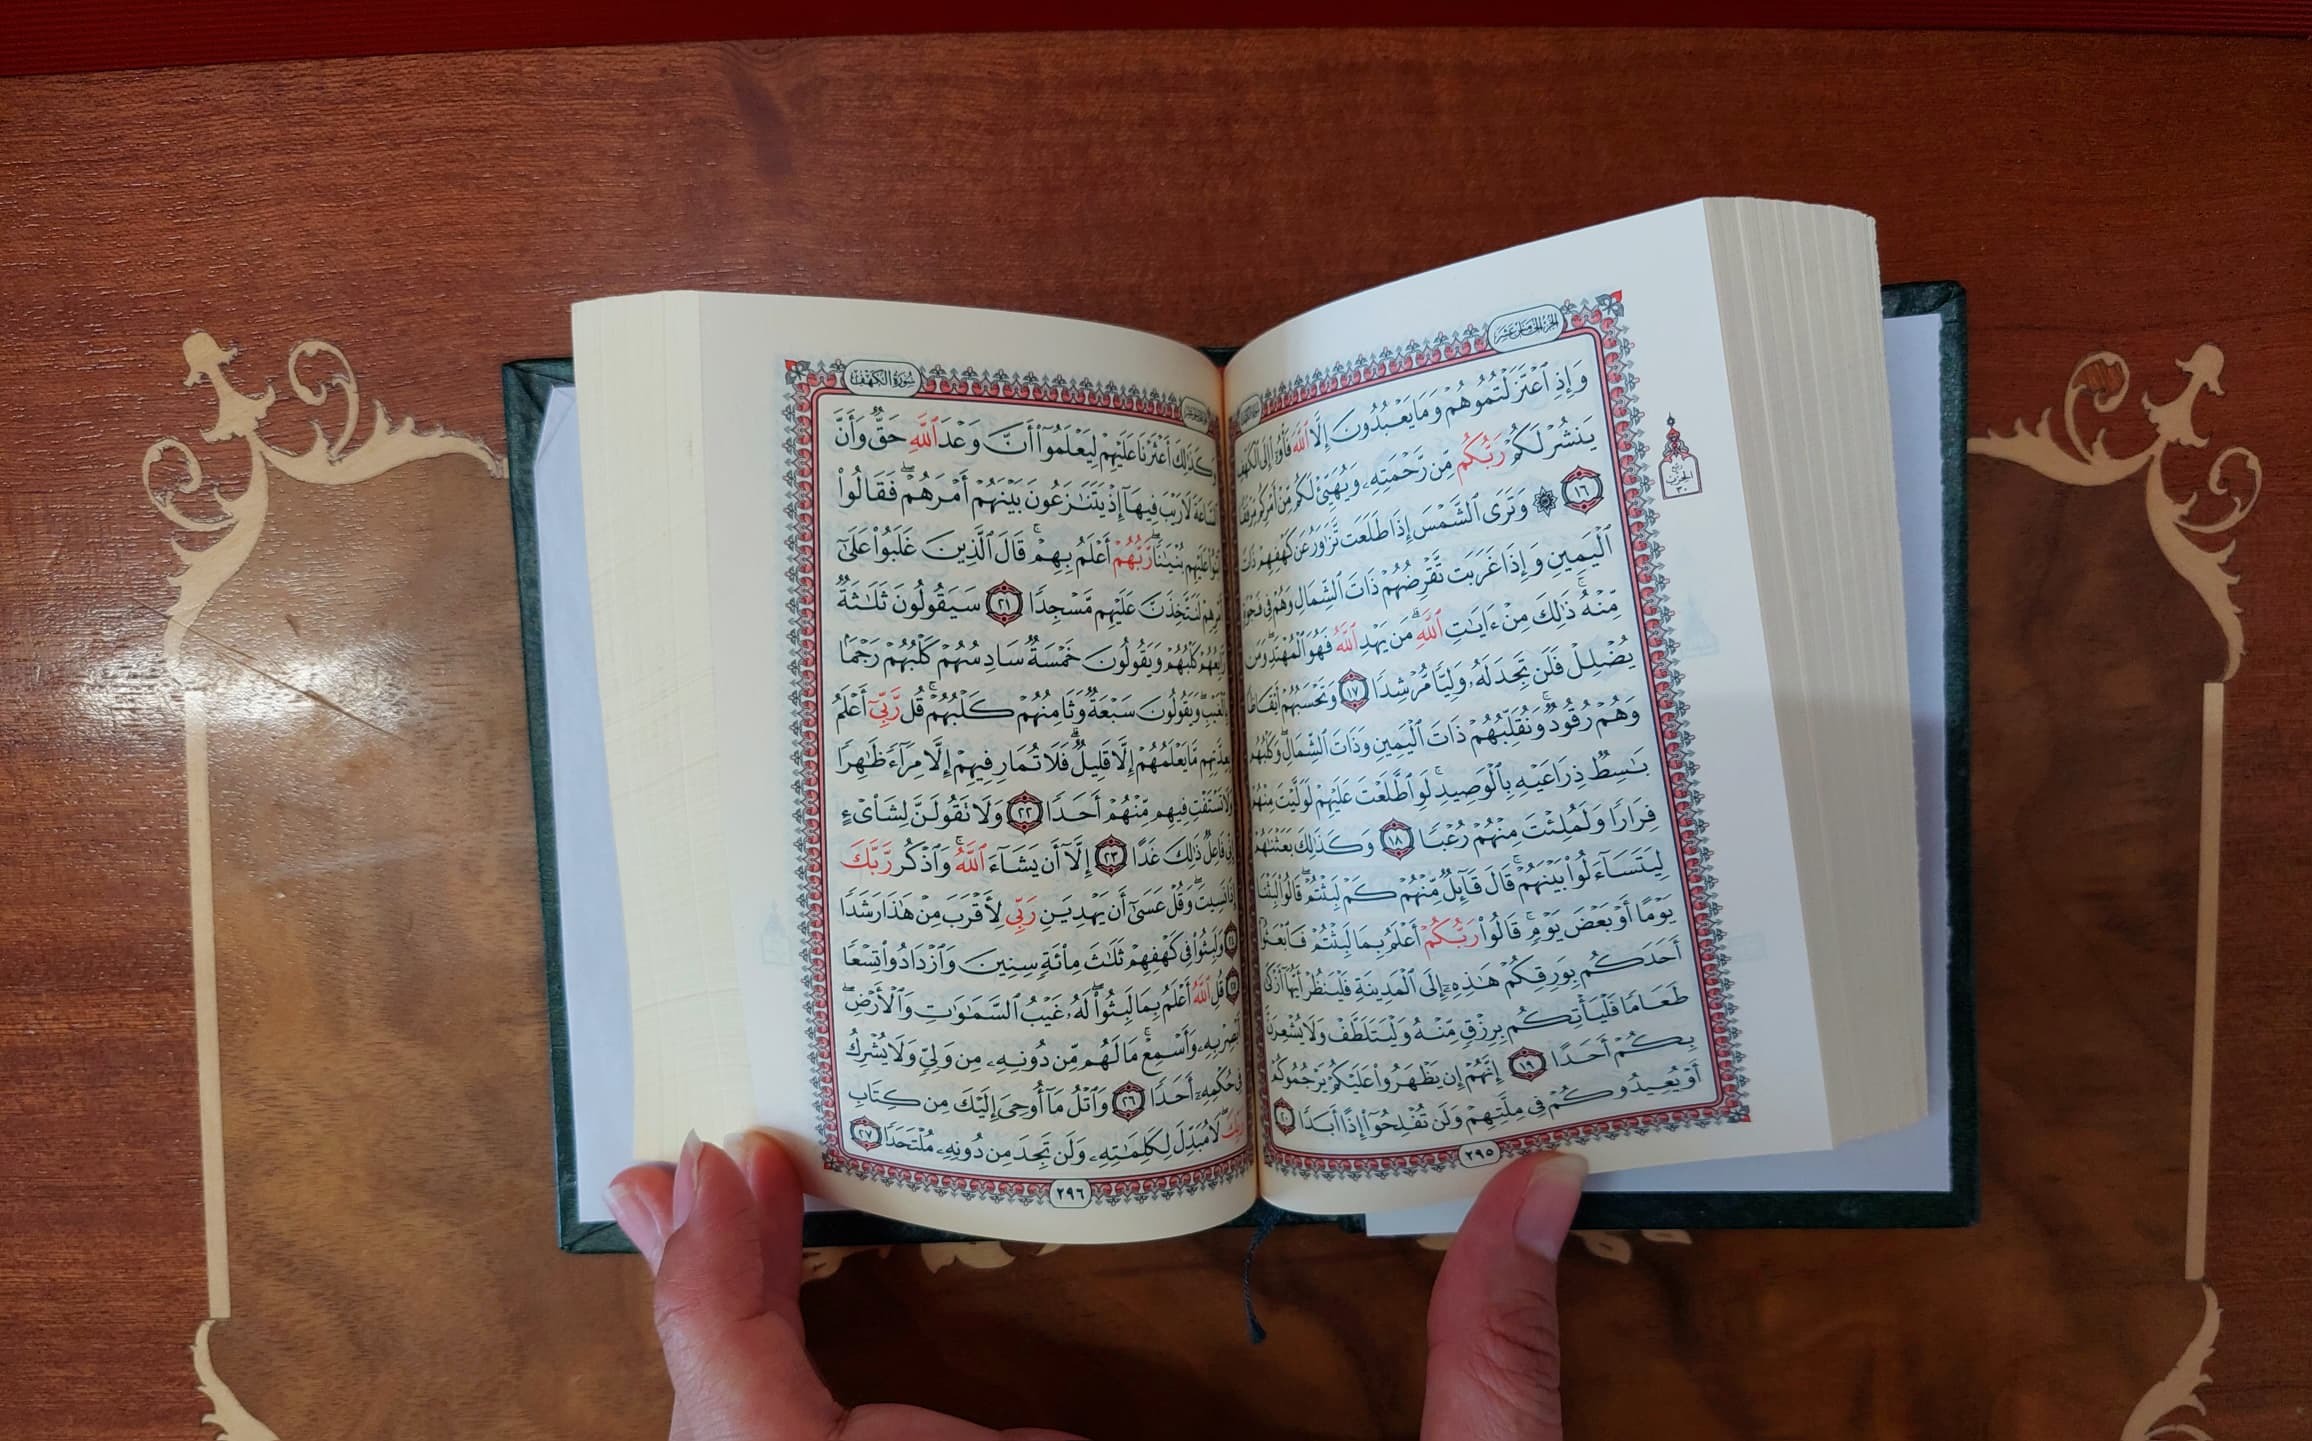 الجزء الخامس عشر
وَإِذِ ٱعْتَزَلْتُمُوهُمْ وَمَا يَعْبُدُونَ إِلَّا ٱللَّهَ فَأْوُۥٓا۟ إِلَى ٱلْكَهْفِ
يَنشُرْ لَكُمْ رَبُّكُم مِّن رَّحْمَتِهِۦ وَيُهَيِّئْ لَكُم مِّنْ أَمْرِكُم مِّرْفَقًا
١٦ ۞ وَتَرَى ٱلشَّمْسَ إِذَا طَلَعَت تَّزَٰوَرُ عَن كَهْفِهِمْ ذَاتَ
ٱلْيَمِينِ وَإِذَا غَرَبَت تَّقْرِضُهُمْ ذَاتَ ٱلشِّمَالِ وَهُمْ فِى فَجْوَةٍ
مِّنْهُ ۚ ذَٰلِكَ مِنْ ءَايَٰتِ ٱللَّهِ ۗ مَن يَهْدِ ٱللَّهُ فَهُوَ ٱلْمُهْتَدِ ۖ وَمَن
يُضْلِلْ فَلَن تَجِدَ لَهُۥ وَلِيًّا مُّرْشِدًا ١٧ وَتَحْسَبُهُمْ أَيْقَاظًا
وَهُمْ رُقُودٌ ۚ وَنُقَلِّبُهُمْ ذَاتَ ٱلْيَمِينِ وَذَاتَ ٱلشِّمَالِ ۖ وَكَلْبُهُم
بَٰسِطٌ ذِرَاعَيْهِ بِٱلْوَصِيدِ ۚ لَوِ ٱطَّلَعْتَ عَلَيْهِمْ لَوَلَّيْتَ مِنْهُمْ
فِرَارًا وَلَمُلِئْتَ مِنْهُمْ رُعْبًا ١٨ وَكَذَٰلِكَ بَعَثْنَٰهُمْ
لِيَتَسَآءَلُوا۟ بَيْنَهُمْ ۚ قَالَ قَآئِلٌ مِّنْهُمْ كَمْ لَبِثْتُمْ ۖ قَالُوا۟ لَبِثْنَا
يَوْمًا أَوْ بَعْضَ يَوْمٍ ۚ قَالُوا۟ رَبُّكُمْ أَعْلَمُ بِمَا لَبِثْتُمْ فَٱبْعَثُوٓا۟
أَحَدَكُم بِوَرِقِكُمْ هَٰذِهِۦٓ إِلَى ٱلْمَدِينَةِ فَلْيَنظُرْ أَيُّهَآ أَزْكَىٰ
طَعَامًا فَلْيَأْتِكُم بِرِزْقٍ مِّنْهُ وَلْيَتَلَطَّفْ وَلَا يُشْعِرَنَّ
بِكُمْ أَحَدًا ١٩ إِنَّهُمْ إِن يَظْهَرُوا۟ عَلَيْكُمْ يَرْجُمُوكُمْ
أَوْ يُعِيدُوكُمْ فِى مِلَّتِهِمْ وَلَن تُفْلِحُوٓا۟ إِذًا أَبَدًا ٢٠
٢٩٥
الحزب
٣٠
سورة الكهف
وَكَذَٰلِكَ أَعْثَرْنَا عَلَيْهِمْ لِيَعْلَمُوٓا۟ أَنَّ وَعْدَ ٱللَّهِ حَقٌّ وَأَنَّ
ٱلسَّاعَةَ لَا رَيْبَ فِيهَآ إِذْ يَتَنَٰزَعُونَ بَيْنَهُمْ أَمْرَهُمْ ۖ فَقَالُوا۟
ٱبْنُوا۟ عَلَيْهِم بُنْيَٰنًا ۖ رَّبُّهُمْ أَعْلَمُ بِهِمْ ۚ قَالَ ٱلَّذِينَ غَلَبُوا۟ عَلَىٰٓ
أَمْرِهِمْ لَنَتَّخِذَنَّ عَلَيْهِم مَّسْجِدًا ٢١ سَيَقُولُونَ ثَلَٰثَةٌ
رَّابِعُهُمْ كَلْبُهُمْ وَيَقُولُونَ خَمْسَةٌ سَادِسُهُمْ كَلْبُهُمْ رَجْمًۢا
بِٱلْغَيْبِ ۖ وَيَقُولُونَ سَبْعَةٌ وَثَامِنُهُمْ كَلْبُهُمْ ۚ قُل رَّبِّىٓ أَعْلَمُ
بِعِدَّتِهِم مَّا يَعْلَمُهُمْ إِلَّا قَلِيلٌ ۗ فَلَا تُمَارِ فِيهِمْ إِلَّا مِرَآءً ظَٰهِرًا
وَلَا تَسْتَفْتِ فِيهِم مِّنْهُمْ أَحَدًا ٢٢ وَلَا تَقُولَنَّ لِشَا۟ىْءٍ
إِنِّى فَاعِلٌ ذَٰلِكَ غَدًا ٢٣ إِلَّآ أَن يَشَآءَ ٱللَّهُ ۚ وَٱذْكُر رَّبَّكَ
إِذَا نَسِيتَ وَقُلْ عَسَىٰٓ أَن يَهْدِيَنِ رَبِّى لِأَقْرَبَ مِنْ هَٰذَا رَشَدًا
٢٤ وَلَبِثُوا۟ فِى كَهْفِهِمْ ثَلَٰثَ مِا۟ئَةٍ سِنِينَ وَٱزْدَادُوا۟ تِسْعًا
٢٥ قُلِ ٱللَّهُ أَعْلَمُ بِمَا لَبِثُوا۟ ۖ لَهُۥ غَيْبُ ٱلسَّمَٰوَٰتِ وَٱلْأَرْضِ ۖ
أَبْصِرْ بِهِۦ وَأَسْمِعْ ۚ مَا لَهُم مِّن دُونِهِۦ مِن وَلِىٍّ وَلَا يُشْرِكُ
فِى حُكْمِهِۦٓ أَحَدًا ٢٦ وَٱتْلُ مَآ أُوحِىَ إِلَيْكَ مِن كِتَابِ
رَبِّكَ ۖ لَا مُبَدِّلَ لِكَلِمَٰتِهِۦ وَلَن تَجِدَ مِن دُونِهِۦ مُلْتَحَدًا ٢٧
٢٩٦